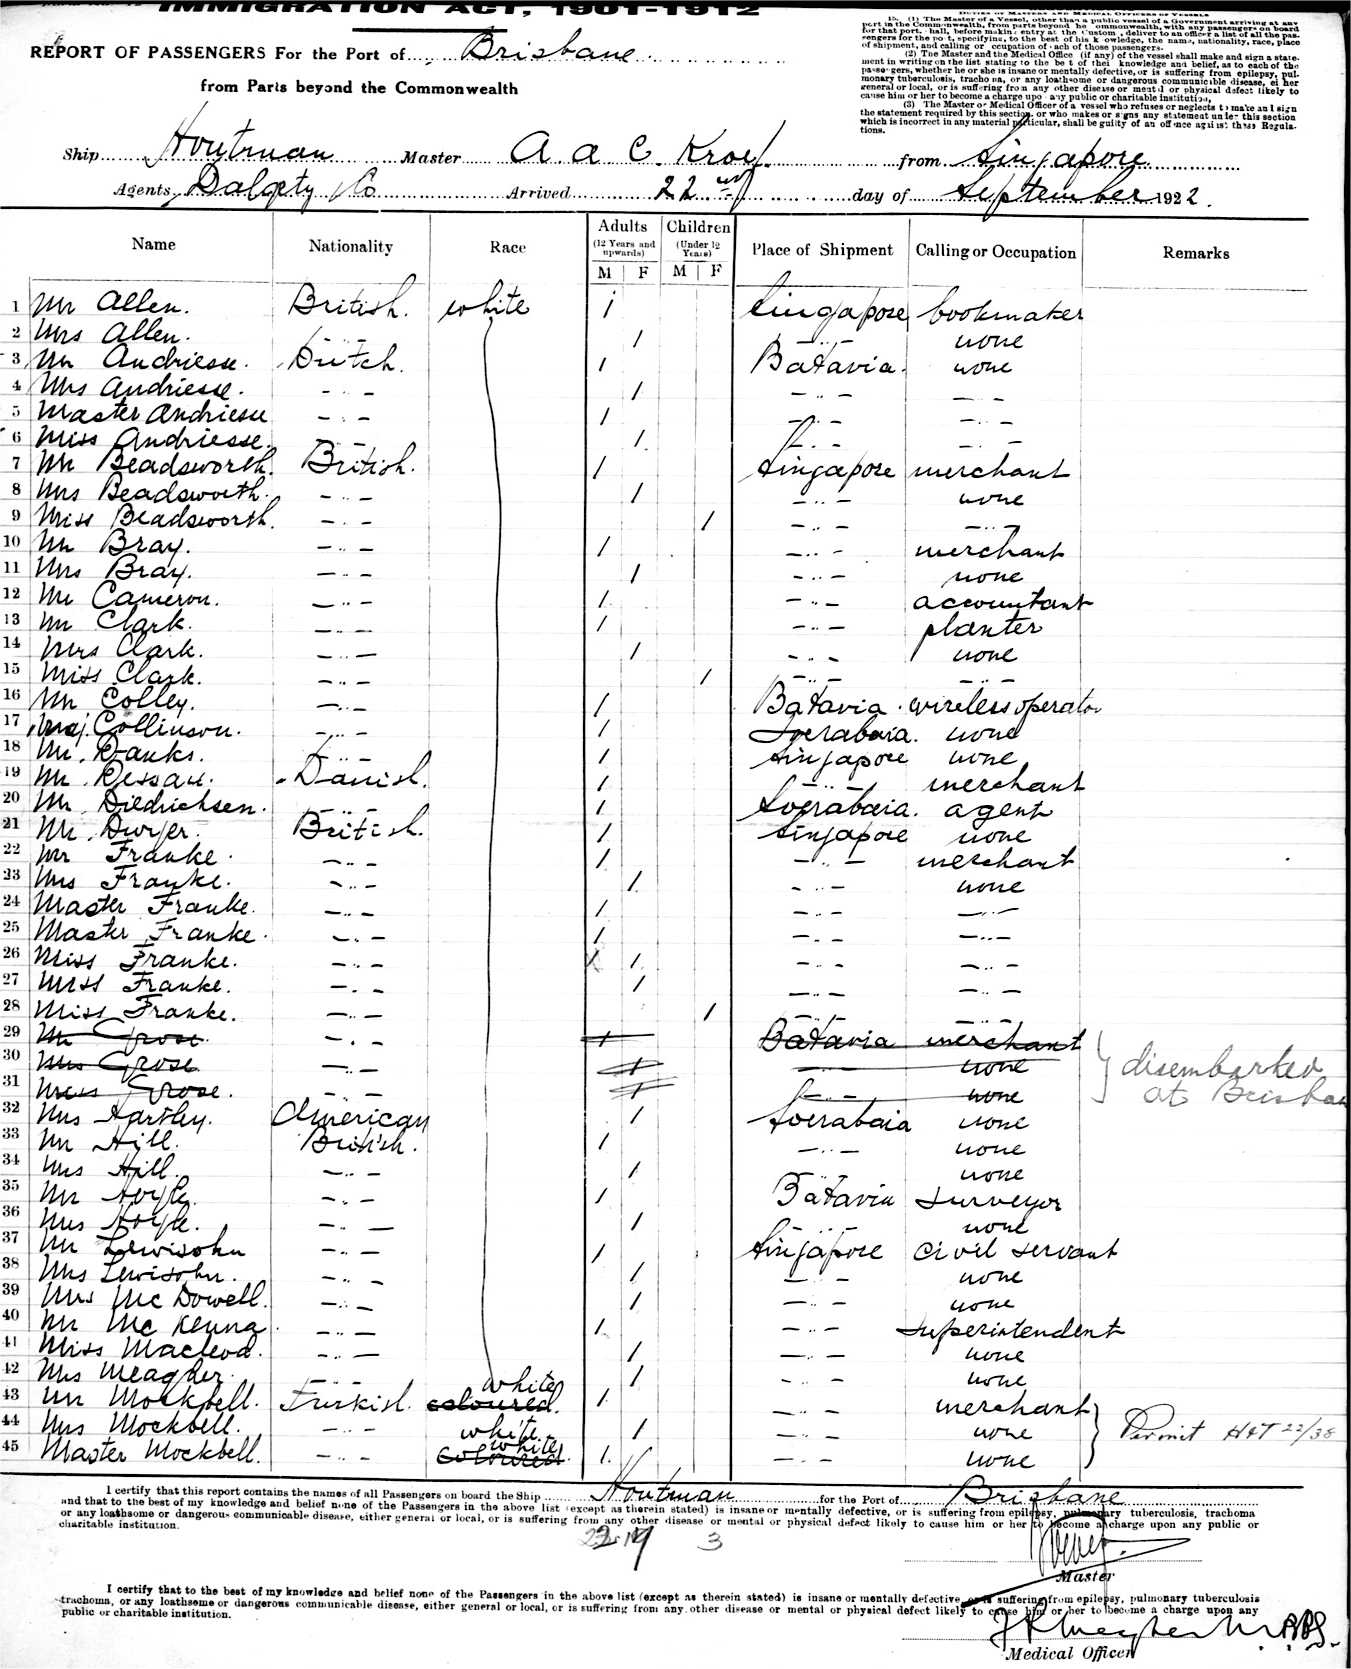 IMMIGRATION ACT, 1901-1912
REPORT OF PASSENGERS For the Port of Brisbane
from Parts beyond the Commonwealth
15. (1) The Master of a Vessel, other than a public vessel of a Government arriving at any
port in the Commonwealth, from parts beyond he ommonwealth, with any passengers on board
for that port, hall, before making entry at the Custom , deliver to an officer a list of all the pas-
sengers for the po t, specifying, to the best of his k owledge, the name, nationality, race, place
of shipment, and calling or ccupation of ach of those passengers.
(2) The Master and the Medical Office (if any) of the vessel shall make and sign a state-
ment in writing on the list stating to the be t of thei knowledge and belief, as to each of the
passengers, whether he or she is insane or mentally defective, or is suffering from epilepsy, pul-
monary tuberculosis, tracho na, or any loathsome or dangerous communicible disease, ei her
general or local, or is suffering from any other disease or mental or physical defect likely to
cause him or her to become a charge upo any public or charitable institution,
(3) The Master or Medical Officer of a vessel who refuses or neglects to make and sign
the statement required by this section, or who makes or signs any statement under this section
which is incorrect in any material particular, shall be guilty of an offence against these Regula-
tions.
Ship Houtman Master A A C. Kroef. from Singapore
Agents Dalgety & Co Arrived 22 nd day of September 1922.
Name Nationality Race Adults (12 Years and upwards) M F Children (Under 12 Years) M F Place of Shipment Calling or Occupation Remarks
1 Mr Allen. British. white 1 Singapore bookmaker
2 Mrs Allen. -..- 1 -..- none
3 Mr Andriesse. Dutch. 1 Batavia. none
4 Mrs Andriesse. -..- 1 -..- -..-
5 Master Andriesse -..- 1 -..- -..-
6 Miss Andriesse. -..- 1 -..- -..-
7 Mr Beadsworth. British. 1 Singapore merchant
8 Mrs Beadsworth. -..- 1 -..- none
9 Miss Beadsworth. -..- 1 -..- -..-
10 Mr Bray. -..- 1 -..- merchant
11 Mrs Bray. -..- 1 -..- none
12 Mr Cameron. -..- 1 -..- accountant
13 Mr Clark. -..- 1 -..- planter
14 Mrs Clark. -..- 1 -..- none
15 Miss Clark. -..- 1 -..- -..-
16 Mr Colley. -..- 1 Batavia. wireless operator
17 Maj. Collinson. -..- 1 Soerabaia. none
18 Mr. Danks. -..- 1 Singapore none
19 Mr. Dessau. Danish. 1 -..- merchant
20 Mr Diedrichsen. -..- 1 Soerabaia. agent
21 Mr. Dwyer. British. 1 Singapore none
22 Mr Franke. -..- 1 -..- merchant
23 Mrs Franke. -..- 1 -..- none
24 Master Franke. -..- 1 -..- -..-
25 Master Franke. -..- 1 -..- -..-
26 Miss Franke. -..- 1 -..- -..-
27 Miss Franke. -..- 1 -..- -..-
28 Miss Franke. -..- 1 -..- -..-
29 Mr Grose. -..- 1 Batavia merchant
30 Mrs Grose -..- 1 -..- none disembarked
31 Miss Grose. -..- 1 -..- none at Brisban
32 Mrs Hartley. American 1 Soerabaia none
33 Mr Hill. British. 1 -..- none
34 Mrs Hill. -..- 1 -..- none
35 Mr Hoyle. -..- 1 Batavia surveyor
36 Mrs Hoyle. -..- 1 -..- none
37 Mr Lewisohn -..- 1 Singapore civil servant
38 Mrs Lewisohn. -..- 1 -..- none
39 Mrs McDowell. -..- 1 -..- none
40 Mr McKenna -..- 1. -..- superintendent
41 Miss Macleod. -..- 1 -..- none
42 Mrs Meagher. -..- 1 -..- none
43 Mr Mockbell. Turkish. coloured. white 1 -..- merchant
44 Mrs Mockbell. -..- white 1 -..- none Permit H&T 22/38
45 Master Mockbell. -..- coloured. white 1. -..- none
I certify that this report contains the names of all Passengers on board the Ship Houtman for the Port of Brisbane
and that to the best of my knowledge and belief none of the Passengers in the above list (except as therein stated) is insane or mentally defective, or is suffering from epilepsy, pulmonary tuberculosis, trachoma
or any loathsome or dangerous communicable disease, either general or local, or is suffering from any other disease or mental or physical defect likely to cause him or her to become a charge upon any public or
charitable institution.
22 17 3
Master
I certify that to the best of my knowledge and belief none of the Passengers in the above list (except as therein stated) is insane or mentally defective, or is suffering from epilepsy, pulmonary tuberculosis
trachoma, or any loathsome or dangerous communicable disease, either general or local, or is suffering from any other disease or mental or physical defect likely to cause him or her to become a charge upon any
public or charitable institution.
Medical Officer